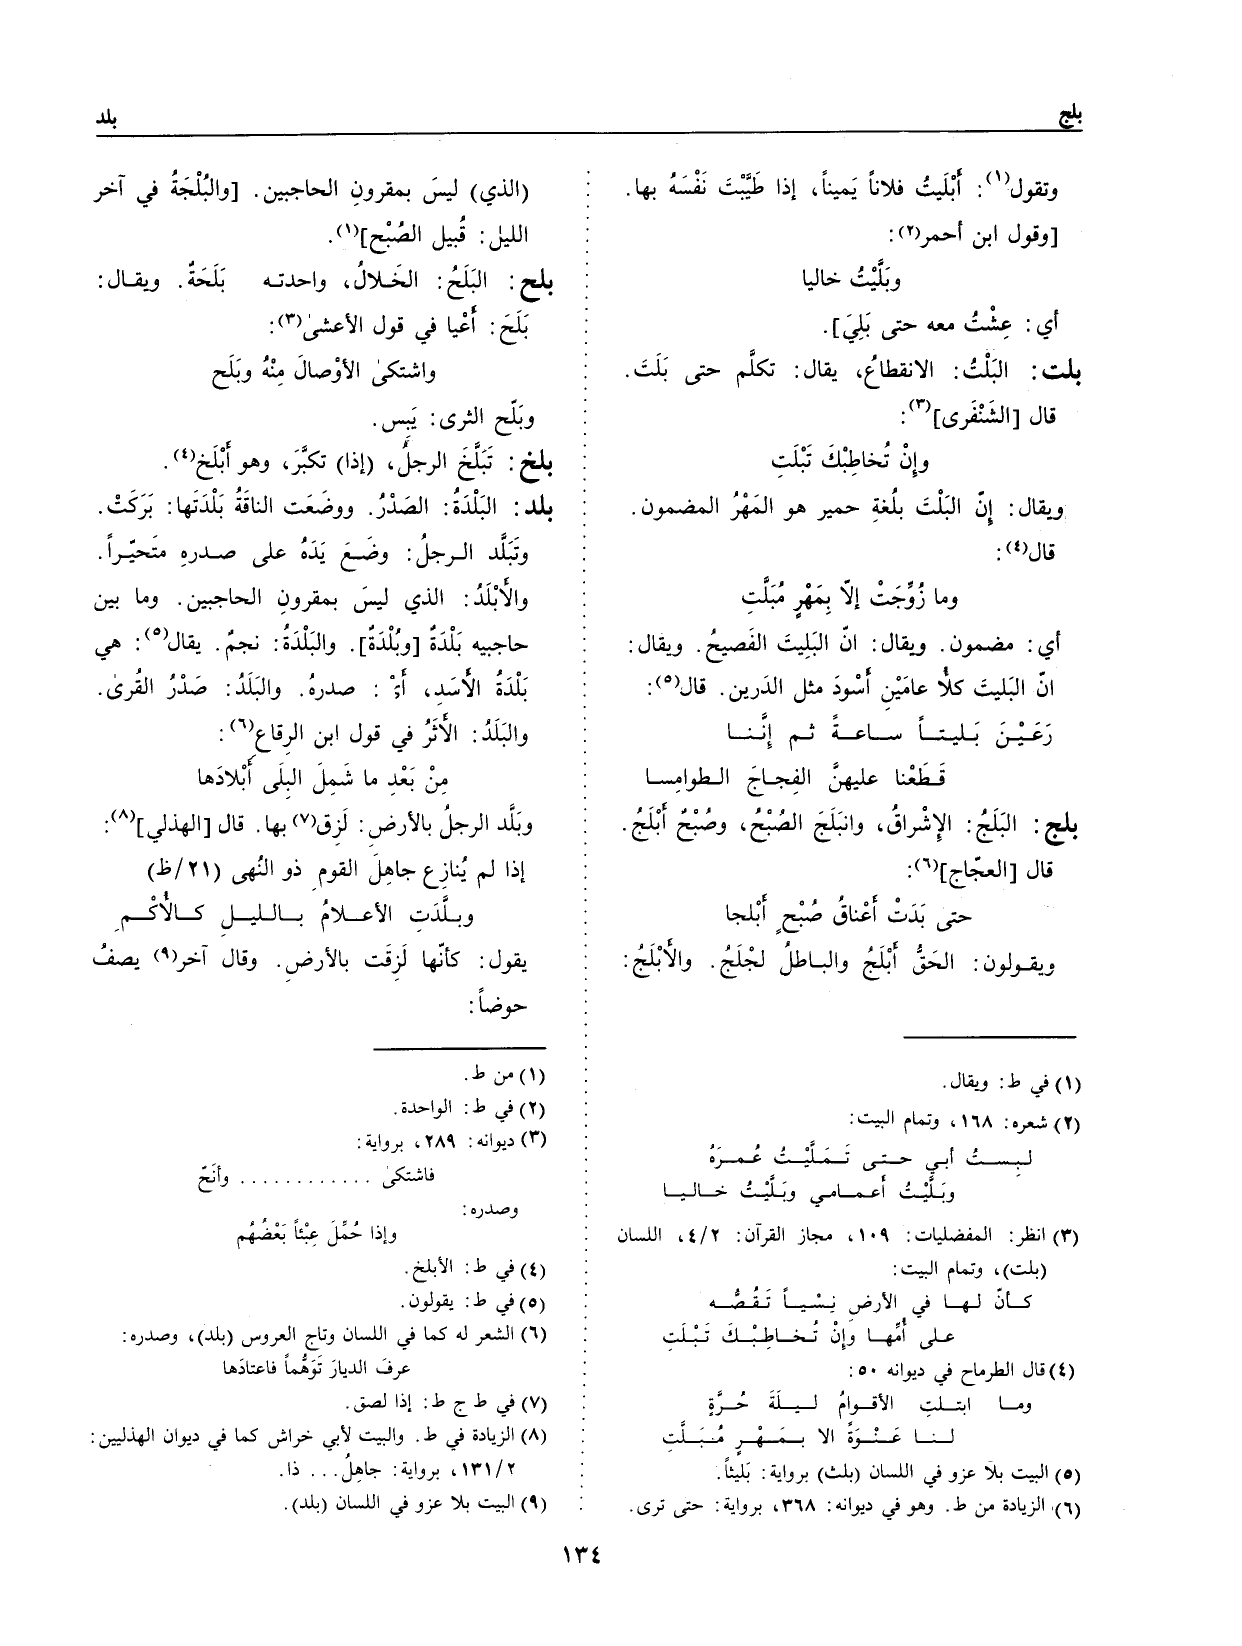 بلج
بلد
وتقول(١): أَبْلَيتُ فلاناً يَميناً، إذا طَيَّبْتَ نَفْسَهُ بها.
[وقول ابن أحمر(٢):
وبَلَّيْتُ خاليا
أي: عِشْتُ معه حتى بَلِيَ].
بلت: البَلْتُ: الانقطاعُ، يقال: تكلَّم حتى بَلَتَ.
قال [الشَنْفَرى](٣):
وإنْ تُخاطِبْكَ تَبْلَتِ
ويقال: إنّ البَلْتَ بلُغةِ حمير هو المَهْرُ المضمون.
قال(٤):
وما زُوِّجَتْ إلاّ بِمَهْرٍ مُبَلَّتِ
أي: مضمون. ويقال: انّ البَليتَ الفَصيحُ. ويقال:
انّ البَليتَ كلأُ عامَيْن أَسْودَ مثل الدَرين. قال(٥):
رَعَيْـنَ بَـليتـاً ســاعــةً ثـم إنَّـنـا
قَـطَعْنا عليهنَّ الفِجـاجَ الـطوامِسـا
بلج: البَلَجُ: الإشراقُ، وانبَلَجَ الصُبْحُ، وصُبْحٌ أَبْلَجُ.
قال [العجّاج](٦):
حتى بَدَتْ أَعْناقُ صُبْحٍ أَبْلجا
ويقـولون: الحَقُّ أَبْلَجُ والبـاطلُ لَجْلَجُ. والأَبْلَجُ:
(١) في ط: ويقال.
(٢) شعره: ١٦٨، وتمام البيت:
لبـســتُ أبي حـتـى تَـمَلَّيْـتُ عُـمـرَهُ
وبَـلَّيْـتُ أعـمـامي وبَلَّيْتُ خـاليـا
(٣) انظر: المفضليات: ١٠٩، مجاز القرآن: ٤/٢، اللسان
(بلت)، وتمام البيت:
كـأنّ لهـا في الأرضِ نِسْيـاً تَـقُصُّـه
على أُمِّهـا وإنْ تُـخـاطِبْـكَ تَـبْلَتِ
(٤) قال الطرماح في ديوانه ٥٠:
ومـا ابتـلتِ الأقـوامُ ليـلةَ حُـرَّةٍ
لـنـا عَـنْـوَةً الا بـمَـهْـرٍ مُـبَـلَّتِ
(٥) البيت بلا عزو في اللسان (بلث) برواية: بَليثاً.
(٦) الزيادة من ط. وهو في ديوانه: ٣٦٨، برواية: حتى ترى.
(الذي) ليسَ بمقرونِ الحاجبين. [والبُلْجَةُ في آخر
الليل: قُبيل الصُبْح](١).
بلح: البَلَحُ: الخَلالُ، واحدتـه بَلَحَةٌ. ويقـال:
بَلَحَ: أَعْيا في قول الأعشىٰ(٣):
واشتكىٰ الأوْصالَ مِنْهُ وبَلَح
وبَلّح الثرى: يَبِس.
بلخ: تَبَلَّخَ الرجلُ، (إذا) تكبَّرَ، وهو أَبْلَخ(٤).
بلد: البَلْدَةُ: الصَدْرُ. ووضَعَت الناقَةُ بَلْدَتَها: بَرَكَتْ.
وتَبَلَّد الـرجلُ: وضَـعَ يَدَهُ على صـدرهِ متحَيّـراً.
والأَبْلَدُ: الذي ليسَ بمقرونِ الحاجبين. وما بين
حاجبيه بَلْدَةٌ [وبُلْدَةٌ]. والبَلْدَةُ: نجمٌ. يقال(٥): هي
بَلْدَةُ الأَسَدِ، أَيْ: صدرهُ. والبَلَدُ: صَدْرُ القُرىٰ.
والبَلَدُ: الأَثَرُ في قول ابن الرِقاع(٦):
مِنْ بَعْدِ ما شَمِلَ البِلَى أَبْلادَها
وبَلَّد الرجلُ بالأرضِ: لَزِق(٧) بها. قال [الهذلي](٨):
إذا لم يُنازِع جاهِلَ القومِ ذو النُهى (٢١/ظ)
وبـلَّدَتِ الأعـلامُ بـالـليـلِ كـالأُكْـمِ
يقول: كأنّها لَزِقَت بالأرضِ. وقال آخر(٩) يصفُ
حوضاً:
(١) من ط.
(٢) في ط: الواحدة.
(٣) ديوانه: ٢٨٩، برواية:
فاشتكىٰ . . . . . . . . . . . . وأَنَحّ
وصدره:
وإذا حُمِّلَ عِبْئاً بَعْضُهُم
(٤) في ط: الأبلخ.
(٥) في ط: يقولون.
(٦) الشعر له كما في اللسان وتاج العروس (بلد)، وصدره:
عرفَ الديارَ تَوَهُّماً فاعتادَها
(٧) في ط ج ط: إذا لصق.
(٨) الزيادة في ط. والبيت لأبي خراش كما في ديوان الهذليين:
١٣١/٢، برواية: جاهِلُ... ذا.
(٩) البيت بلا عزو في اللسان (بلد).
١٣٤